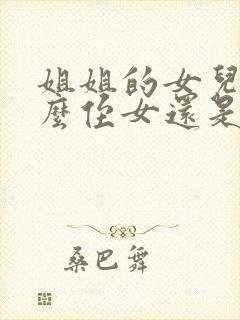 姐姐的女兒
麼侄女還是
桑巴舞